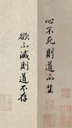 心不死則道不生
欲不滅則道不存